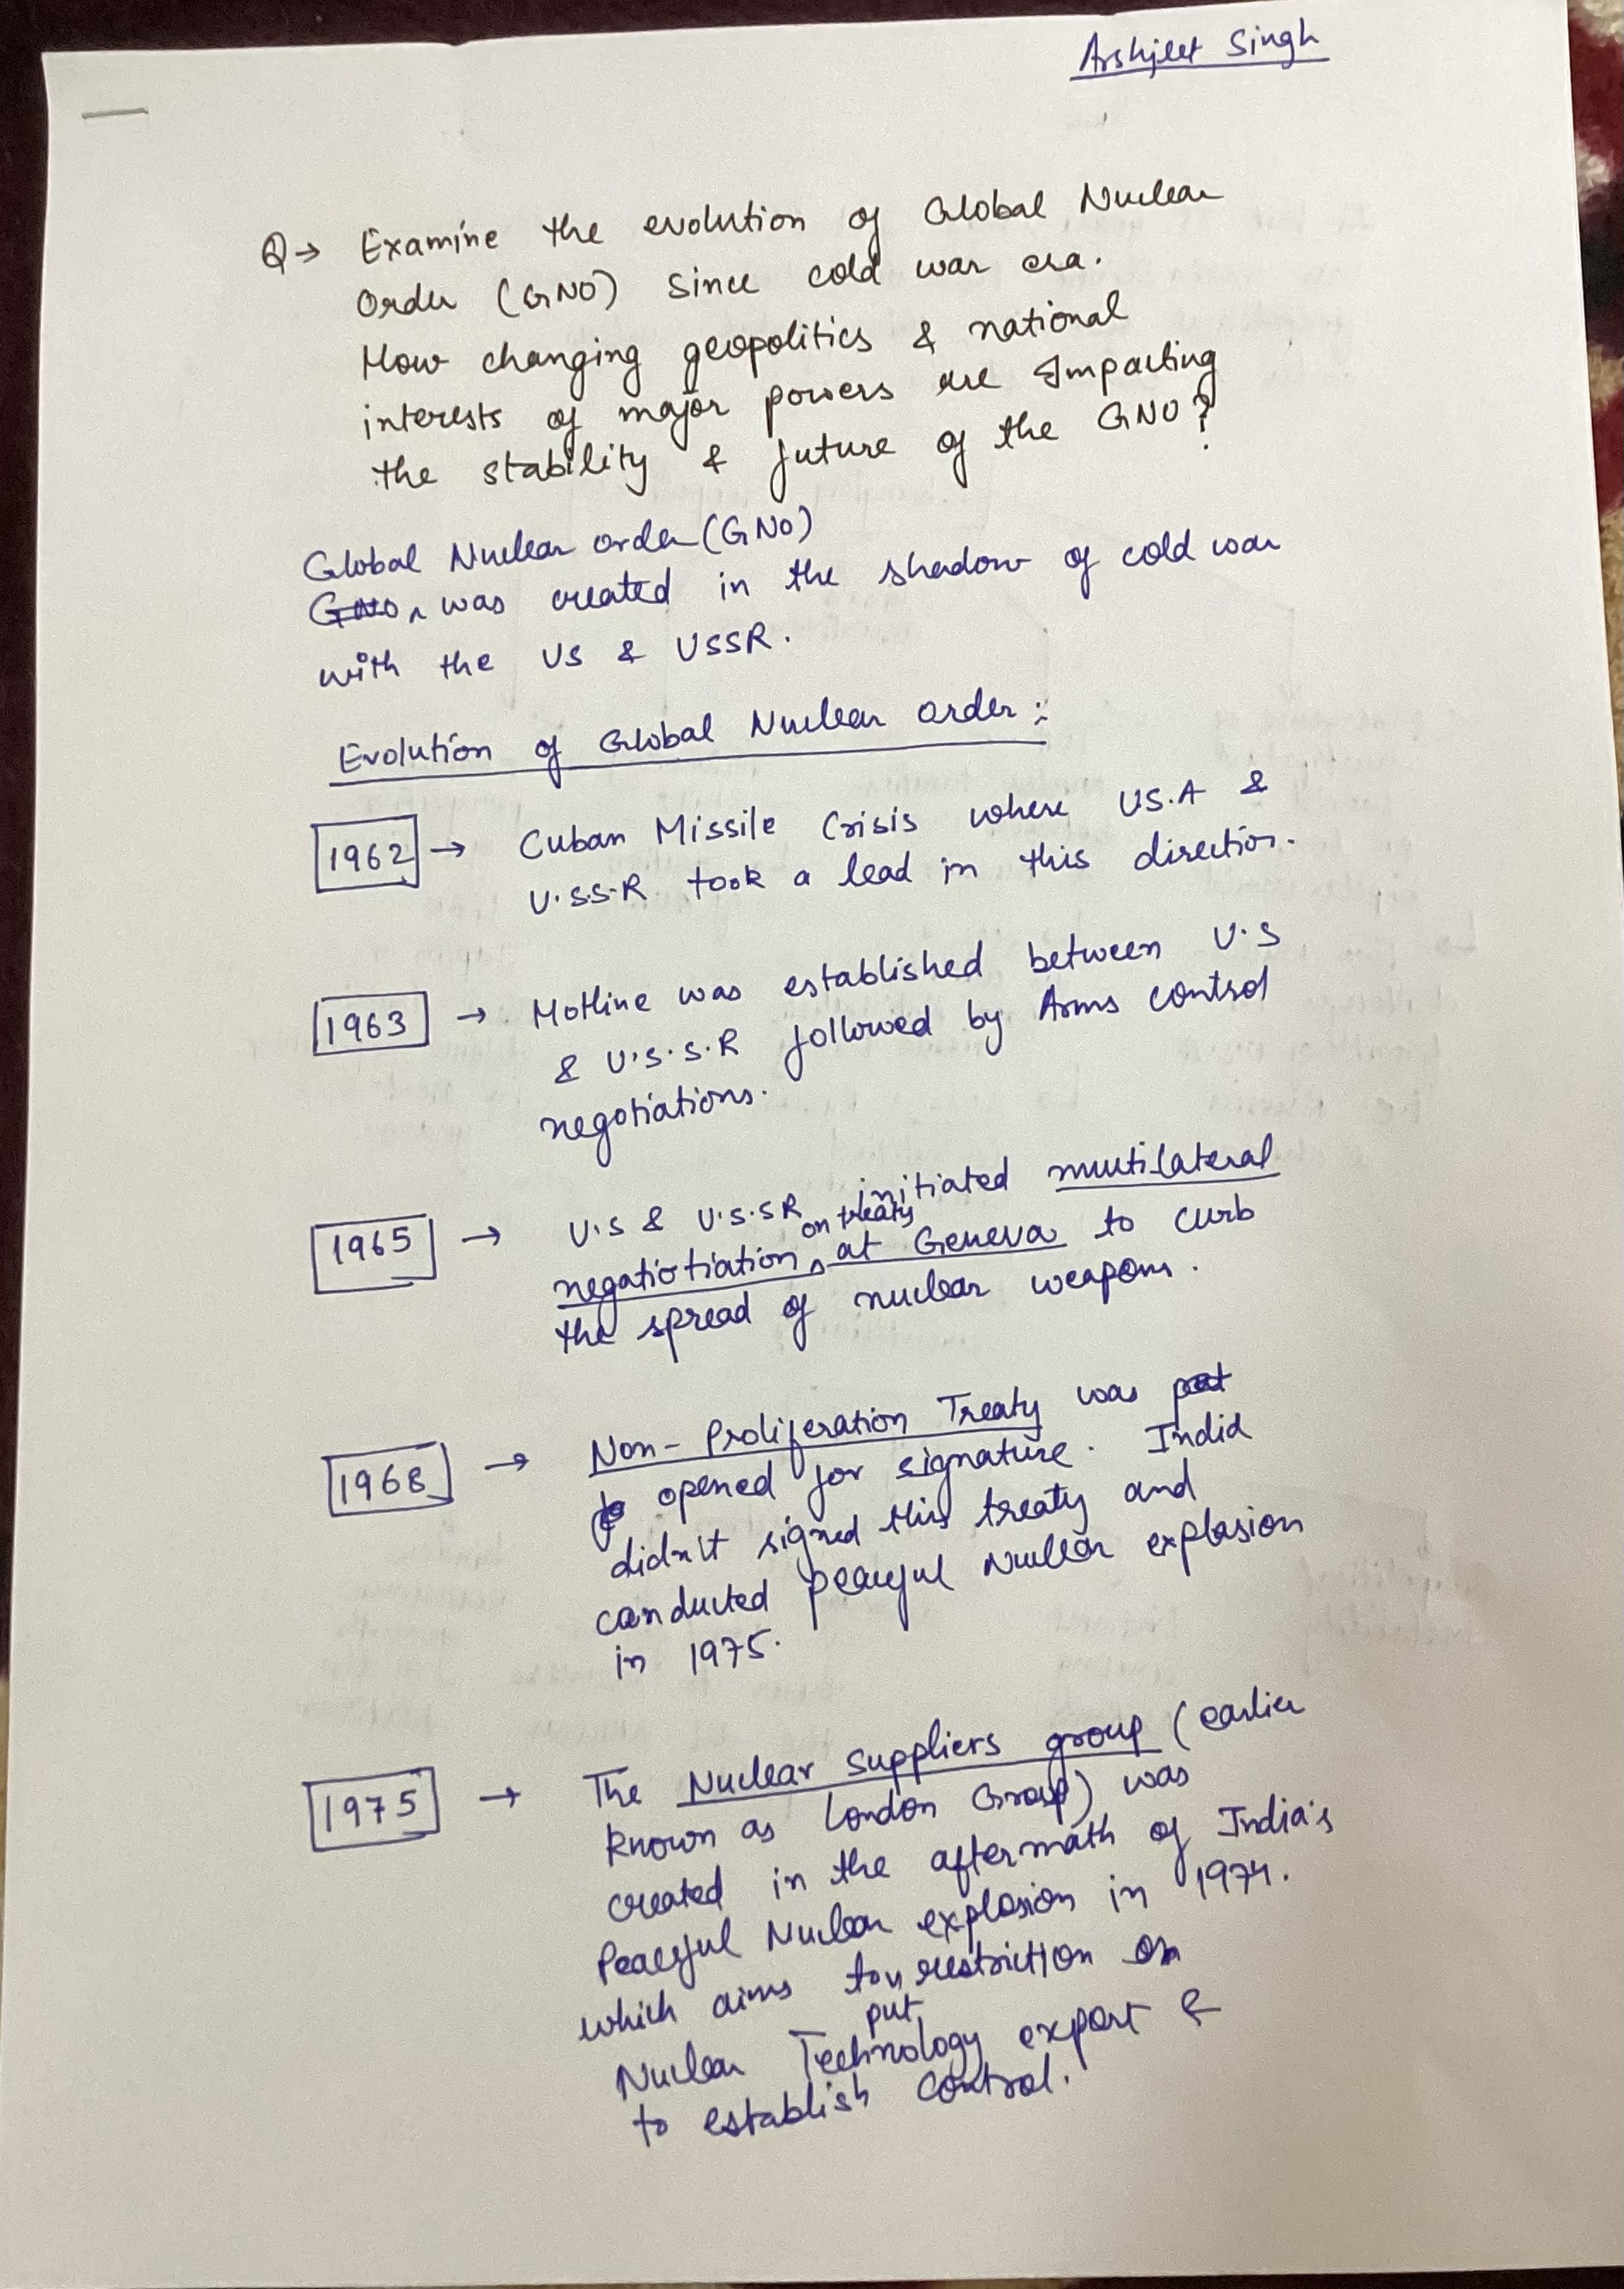 Arshjeet Singh
Q→ Examine the evolution of Global Nuclear
Order (GNO) since cold war era.
How changing geopolitics & national
interests of major powers are Impacting
the stability & future of the GNO?
Global Nuclear order (GNO)
GNO was created in the shadow of cold war
with the US & USSR.
Evolution of Global Nuclear order :-
1962 → Cuban Missile Crisis where US.A &
U.S.S.R took a lead in this direction.
1963 → Hotline was established between U.S
& U.S.S.R followed by Arms control
negotiations.
1965 → U.S & U.S.SR initiated mutilateral
negatiotiation on treaty at Geneva to curb
the spread of nuclear weapons.
1968 → Non-Proliferation Treaty was put
opened for signature. India
didn't signed this treaty and
conducted peaceful Nuclear explosion
in 1975.
1975 → The Nuclear Suppliers group (earlier
known as London Group) was
created in the aftermath of India's
Peaceful Nuclear explosion in 1974.
which aims to put restriction on
Nuclear Technology export &
to establish control.